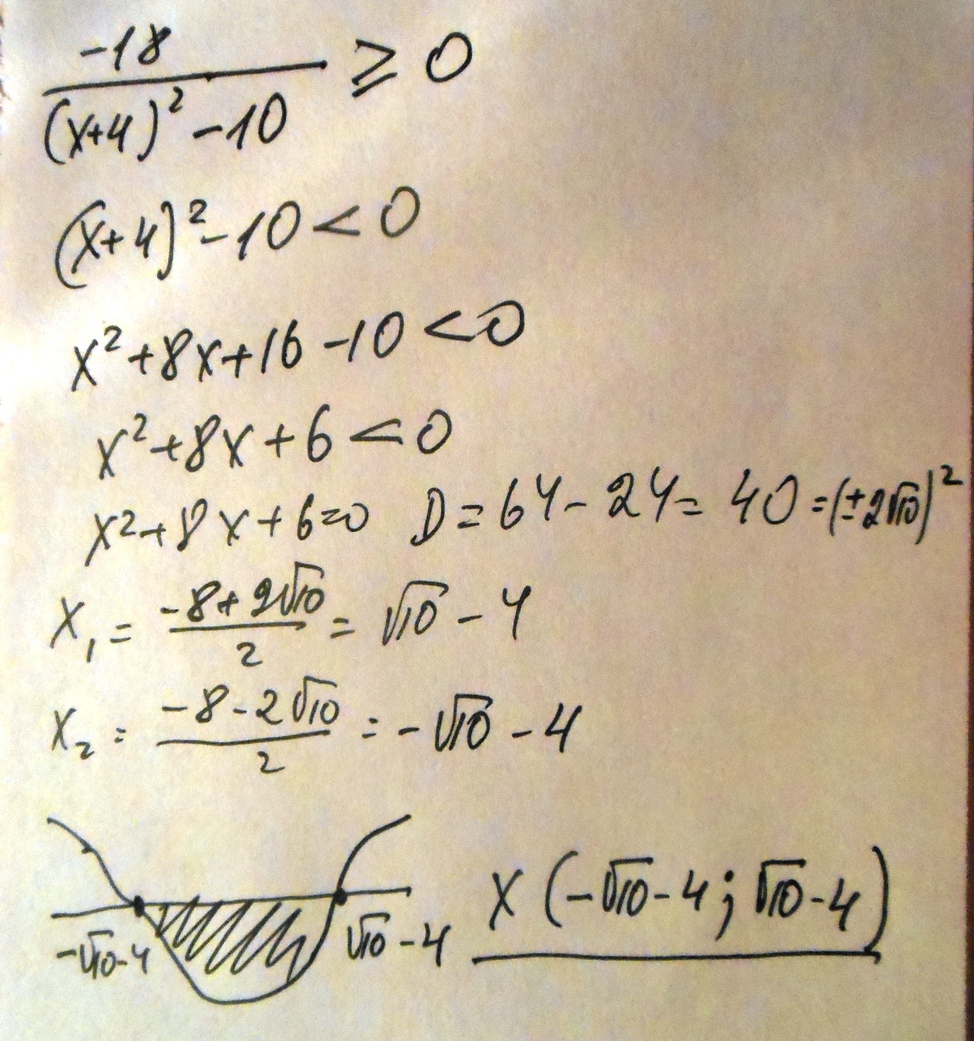 -18
(x+4)² -10 ≥ 0
(x+4)² -10 < 0
x² +8x+16 -10 < 0
x² +8x +6 < 0
x² +8x +6=0 D = 64 - 24 = 40 = (±2√10)²
x₁ = (-8+2√10)/2 = √10 - 4
x₂ = (-8-2√10)/2 = -√10 - 4
-√10-4 √10-4 x (-√10-4; √10-4)